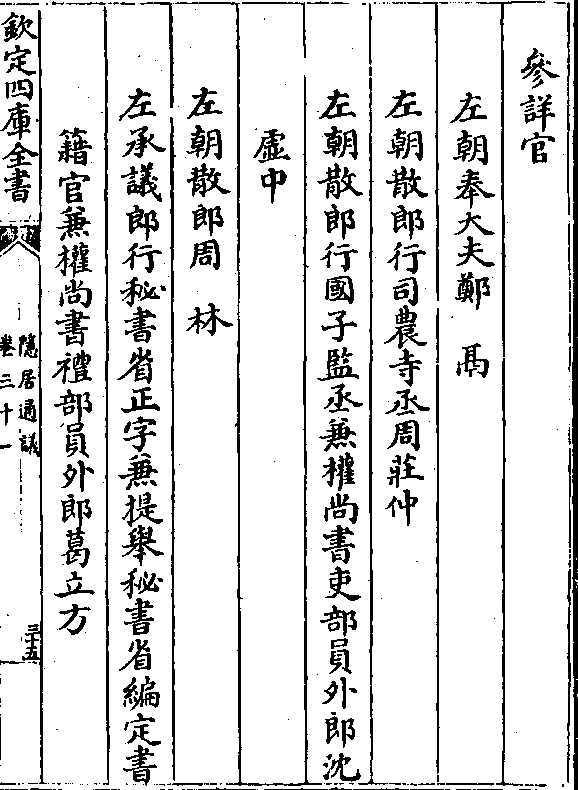 參詳官
左朝奉大夫鄭 咼
左朝散郎行司農寺丞周莊仲
左朝散郎行國子監丞兼權尚書吏部員外郎沈
虛中
左朝散郎周 林
左承議郎行秘書省正字兼提舉秘書省編定書
籍官兼權尚書禮部員外郎葛立方
欽定四庫全書
隱居通議
卷三十一
三十五